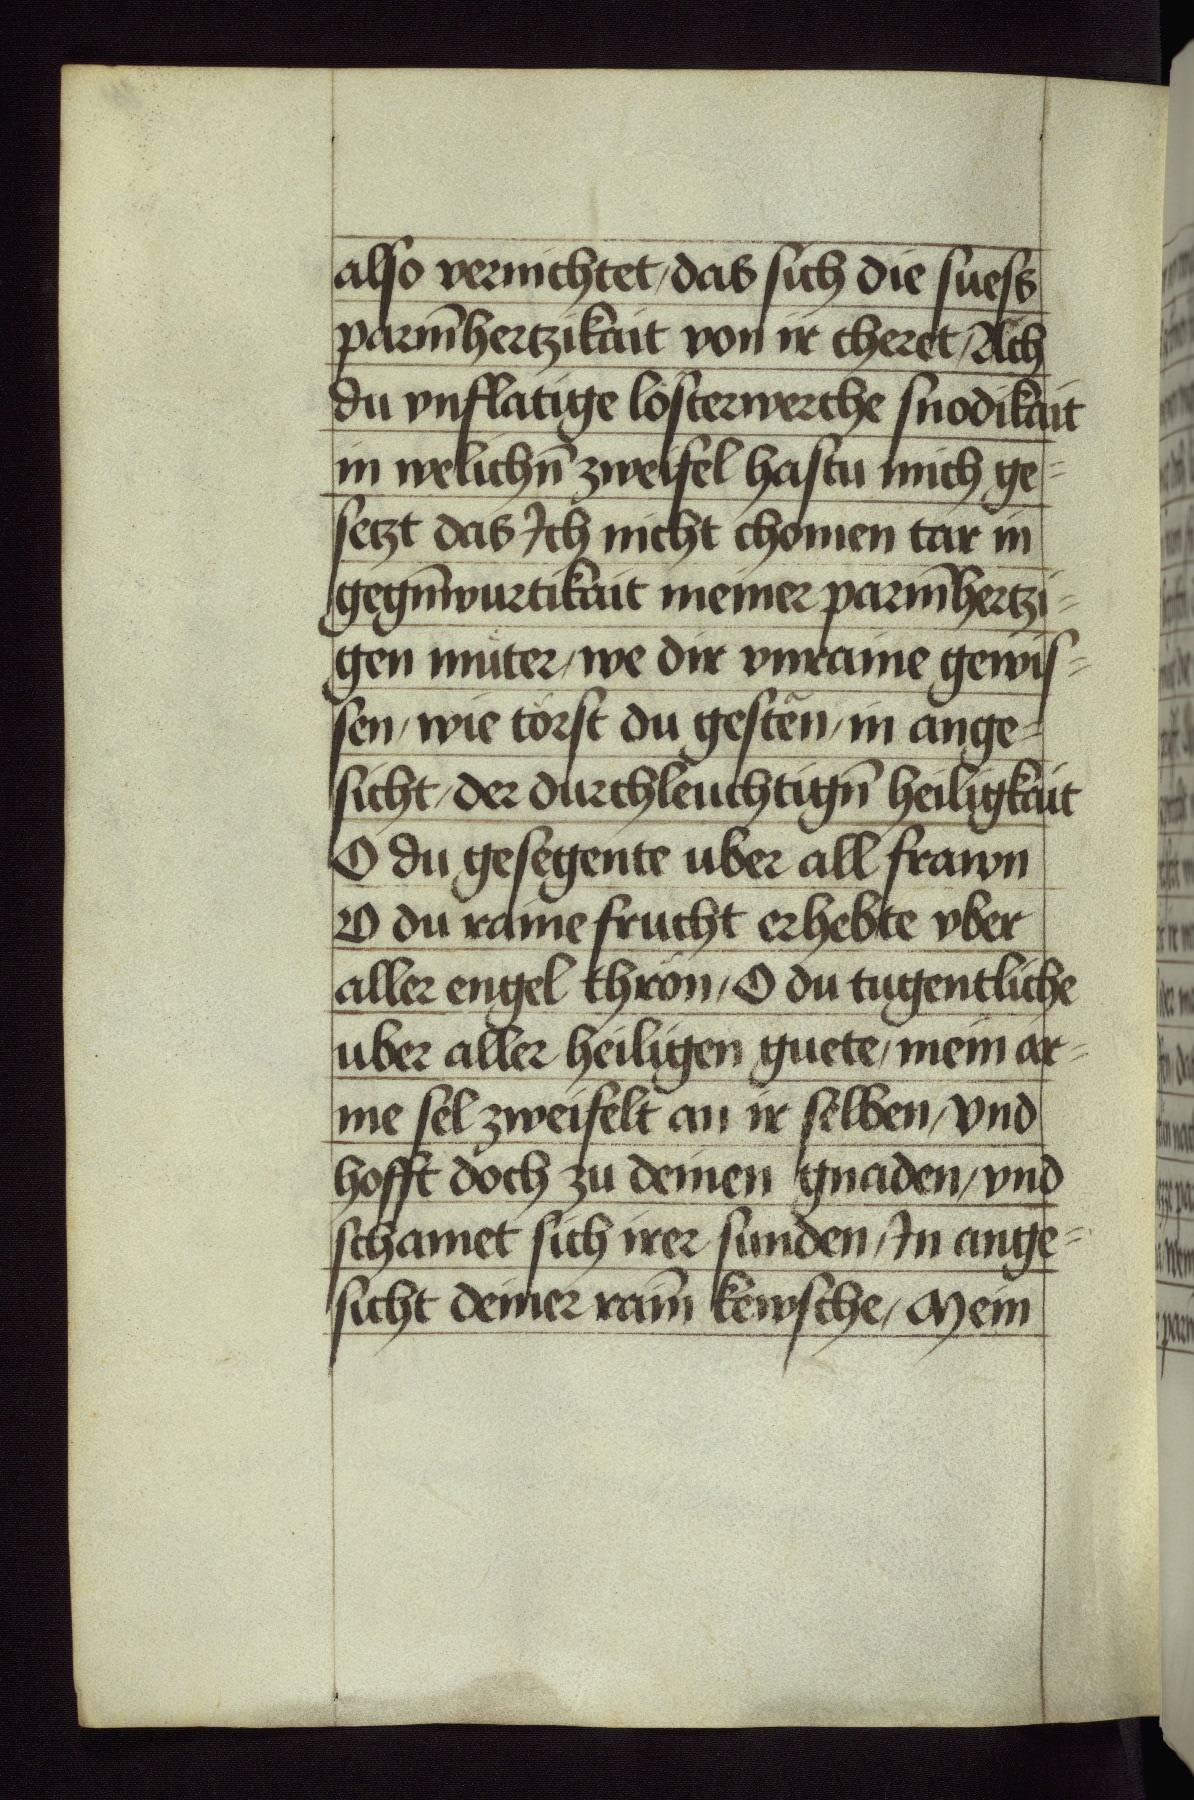 also vernichtet/ das sich die suess
parm̄hertzikait von ir cheret/ Ach
du vnflatige lösterwerche snodikait
in welichn̄ zweifel hastu mich ge=
setzt das Ich nicht chomen tar in
gegn̄wurtikait meiner parm̄hertzi=
gen mu̇ter/ we dir vnraine gewis=
sen/ wie törst du gestën/ in ange=
sicht/ der durchleuchtign̄ heiligkait
O du gesegente uber all frawn
O du raine frucht erhebte vber
aller engel thrön/ O du tugentliche
uber aller heiligen guete/ mein ar=
me sel zweifelt an ir selben/ vnd
hofft doch zu deinen gnaden/ vnd
schamet sich irer sunden/ In ange=
sicht deiner rain̄ kewsche/ Mein